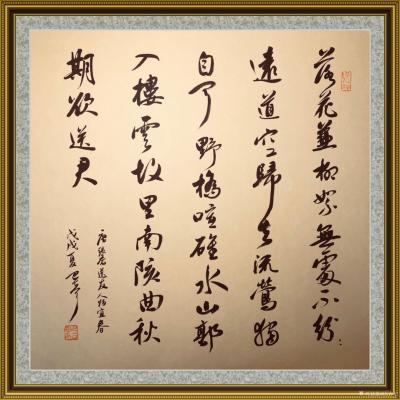 落花兼柳絮無處不紛〻
遠道空歸去流鶯獨
自聞野橋喧碓水山郭
入樓雲故里南陔曲秋
期欲送君
唐張喬送友人歸宜春
戊戌夏